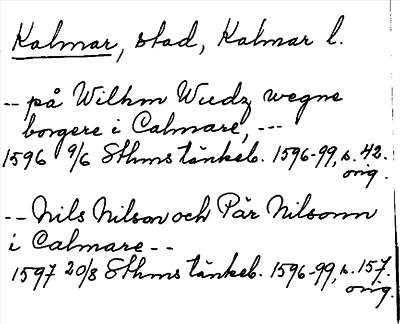 Kalmar, stad, Kalmar l.
-- på Wilhm Wudz wegne
borgere i Calmare, ---
1596 9/6 Sthms tänkeb. 1596-99, s. 42.
orig.
-- Nils Nilson och Pär Nilsonn
i Calmare --
1597 20/8 Sthms tänkeb. 1596-99, s. 157.
orig.